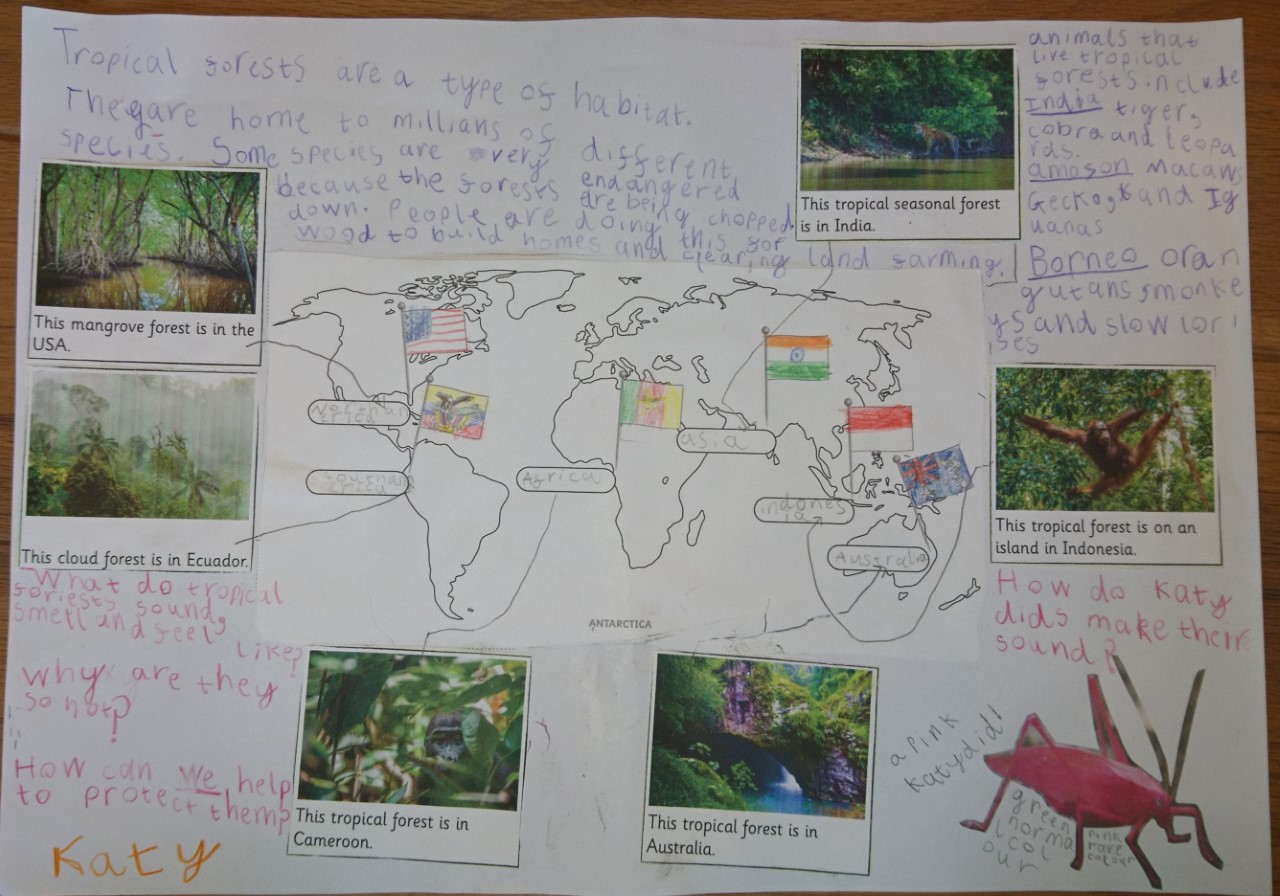 Tropical forests are a type of habitat.
They are home to millians of
species. Some species are very different
because the forests endangered
are being chopped
down. People are doing this for
wood to build homes and clearing land farming.
This tropical seasonal forest
is in India.
animals that
live tropical
forests include
India tiger,
cobra and leopa
rds.
amason Macaws
Geckos and Ig
uanas
Borneo oran
gutans, monke
ys and slow lori
ises
This mangrove forest is in the
USA.
This cloud forest is in Ecuador.
North am
erica
South am
erica
Africa
asia
indones
ia
Australia
ANTARCTICA
This tropical forest is on an
island in Indonesia.
What do tropical
foriests sound,
smell and feel
like?
why are they
so hot?
How can we help
to protect them?
Katy
This tropical forest is in
Cameroon.
This tropical forest is in
Australia.
How do Katy
dids make their
sound?
a Pink
Katydid!
green
(norma
l col
our
pink
rare
colour